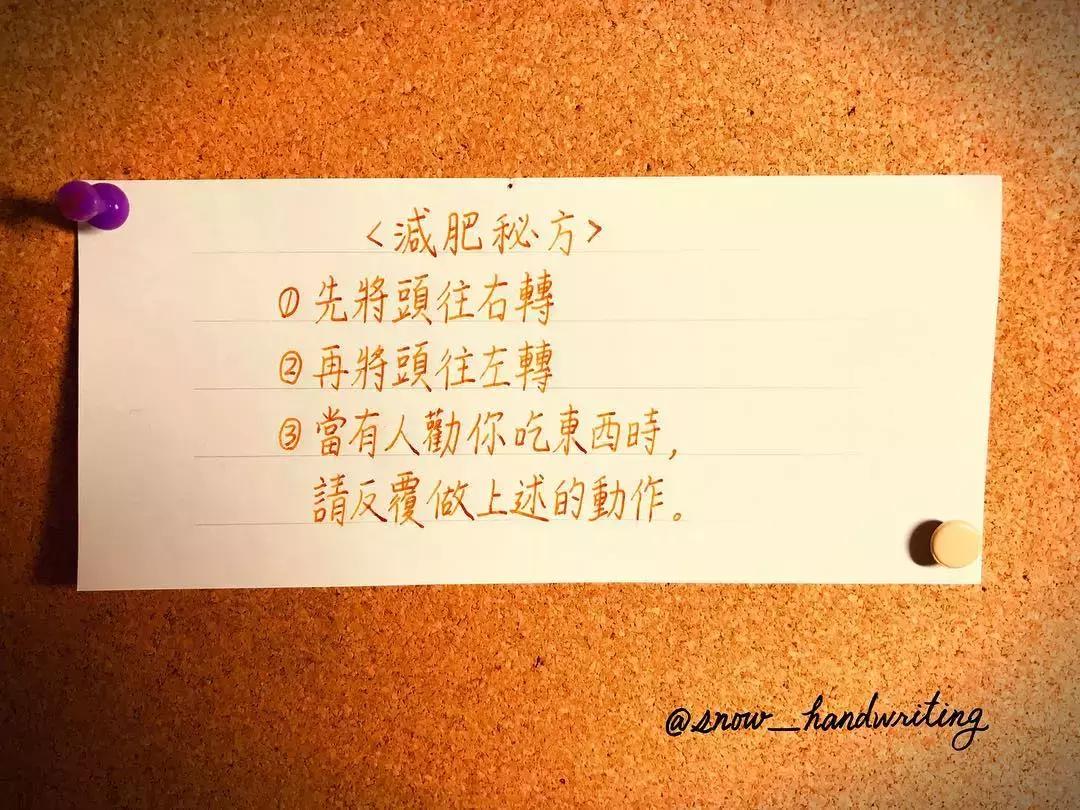 <減肥秘方>
①先將頭往右轉
②再將頭往左轉
③當有人勸你吃東西時,
請反覆做上述的動作。
@snow_handwriting